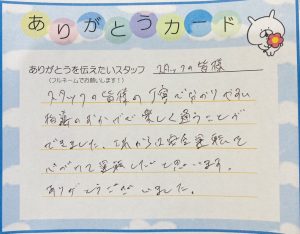 ありがとうカード
ありがとうを伝えたいスタッフ スタッフの皆様
(フルネームでお願いします！)
スタッフの皆様の丁寧で分かりやすい
指導のおかげで楽しく通うことが
できました。これからは安全運転を
心がけて運転したいと思います。
ありがとうございました。